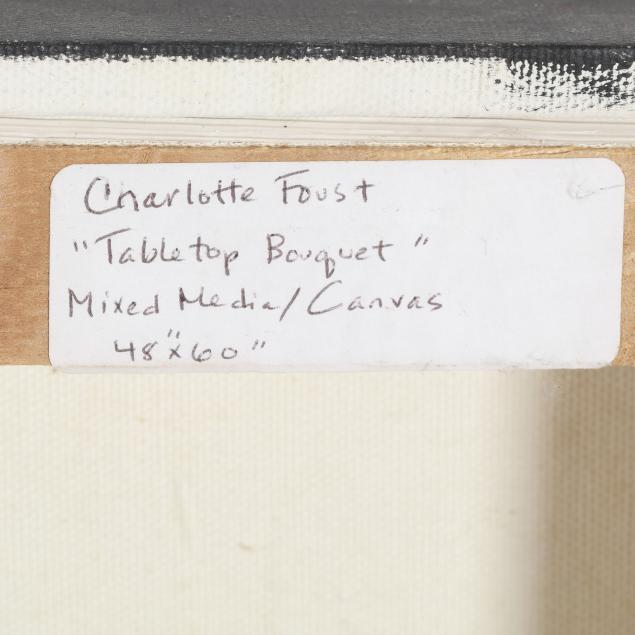 Charlotte Foust
"Tabletop Bouquet"
Mixed Media/Canvas
48"x60"